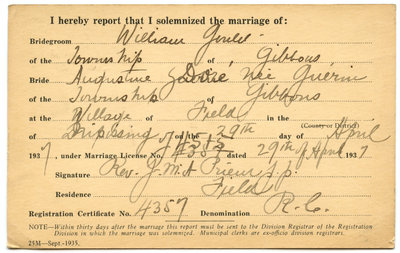 I hereby report that I solemnized the marriage of:
Bridegroom William Gould
of the Township of Gibbons
Bride Augustine née Guerin
of the Township of Gibbons
at the Village of Field in the
(County or District)
of Nipissing on the 29th day of April
1937, under Marriage License No. dated 29th of April 1937
Signature Rev. J. M. A. p.p.
Residence Field
Registration Certificate No. 4357 Denomination R.C.
NOTE—Within thirty days after the marriage this report must be sent to the Division Registrar of the Registration
Division in which the marriage was solemnized. Municipal clerks are ex-officio division registrars.
25M—Sept.-1935.